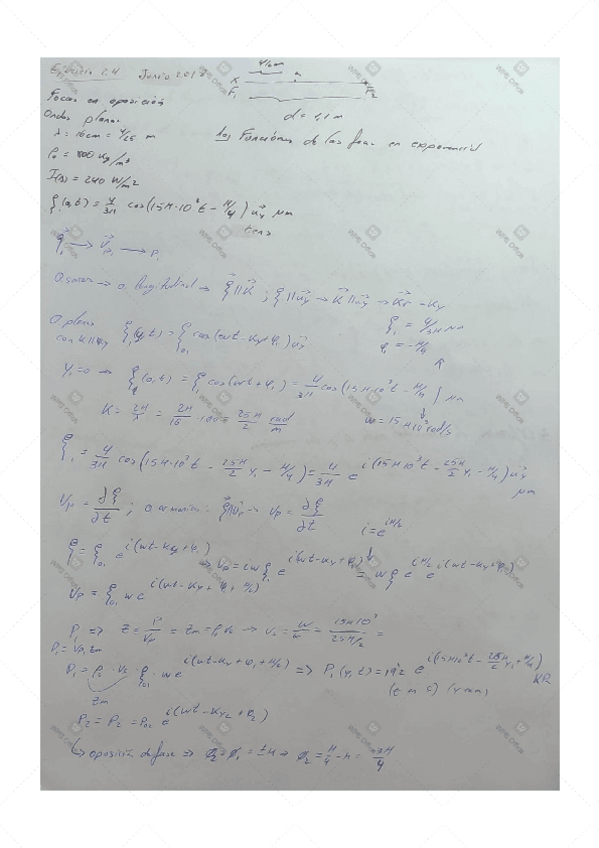 Ejercicio 2.4 Junio 2013
4/6 m
F₁ F₂
d = 1,1 m
Focos en oposición
Ondas planas
λ = 16cm = 4/25 m
los Funciones de las fase en exponencial
ρ₀ = 800 Kg/m³
= 240 W/m²
ξ₁(0,t) = 4/3π cos(15π·10³t - π/4) u⃗y μm
ξ₁ → V⃗p₁ → P₁
O. sonora → o. longitudinal → ξ⃗ ∥ K⃗ ; ξ⃗ ∥ u⃗y → K⃗ ∥ u⃗y → K⃗r⃗ = Ky
O. plana ξ⃗₁(y,t) = ξ₀₁ cos(ωt - Ky + φ₁) u⃗y
con K∥u⃗y
ξ₁ = 4/3π μm
φ₁ = -π/4
y₁=0 → ξ₁(0,t) = ξ₁ cos(ωt + φ₁) = 4/3π cos(15π·10³t - π/4) μm
K = 2π/λ = 2π/16 · 100 = 25π/2 rad/m ω = 15π10³ rad/s
ξ₁ = 4/3π cos(15π·10³t - 25π/2 y₁ - π/4) = 4/3π e^i(15π10³t - 25π/2 y₁ - π/4) u⃗y
μm
Vp = ∂ξ/∂t ; O. armónica: ξ∥Vp → Vp = ∂ξ/∂t i = e^iπ/2
ξ = ξ₀₁ e^i(ωt - Ky + φ₁) ⇒ Vp = iω ξ e^i(ωt - Ky + φ₁) = ω ξ e^iπ/2 e^i(ωt - Ky + φ₁)
Vp = ξ₀₁ ω e^i(ωt - Ky + φ₁ + π/2)
P₁ ⇒ Z = P/Vp = Zm = ρ₀ v₀ → v₀ = ω/K = 15π10³/25π/2 =
P₁ = Vp₁ Zm
P₁ = ρ₀ · v₀ · ξ₀₁ · ω e^i(ωt - Ky + φ₁ + π/2) ⇒ P₁(y,t) = 192 e^i(15π10³t - 25π/2 y₁ + π/4) KPa
Zm
(t en s) (y en m)
P₂ = P₂ = P₀₂ e^i(ωt - Ky₂ + φ₂)
↳ oposición de fase ⇒ φ₂ - φ₁ = ±π ⇒ φ₂ = π/4 - π = -3π/4